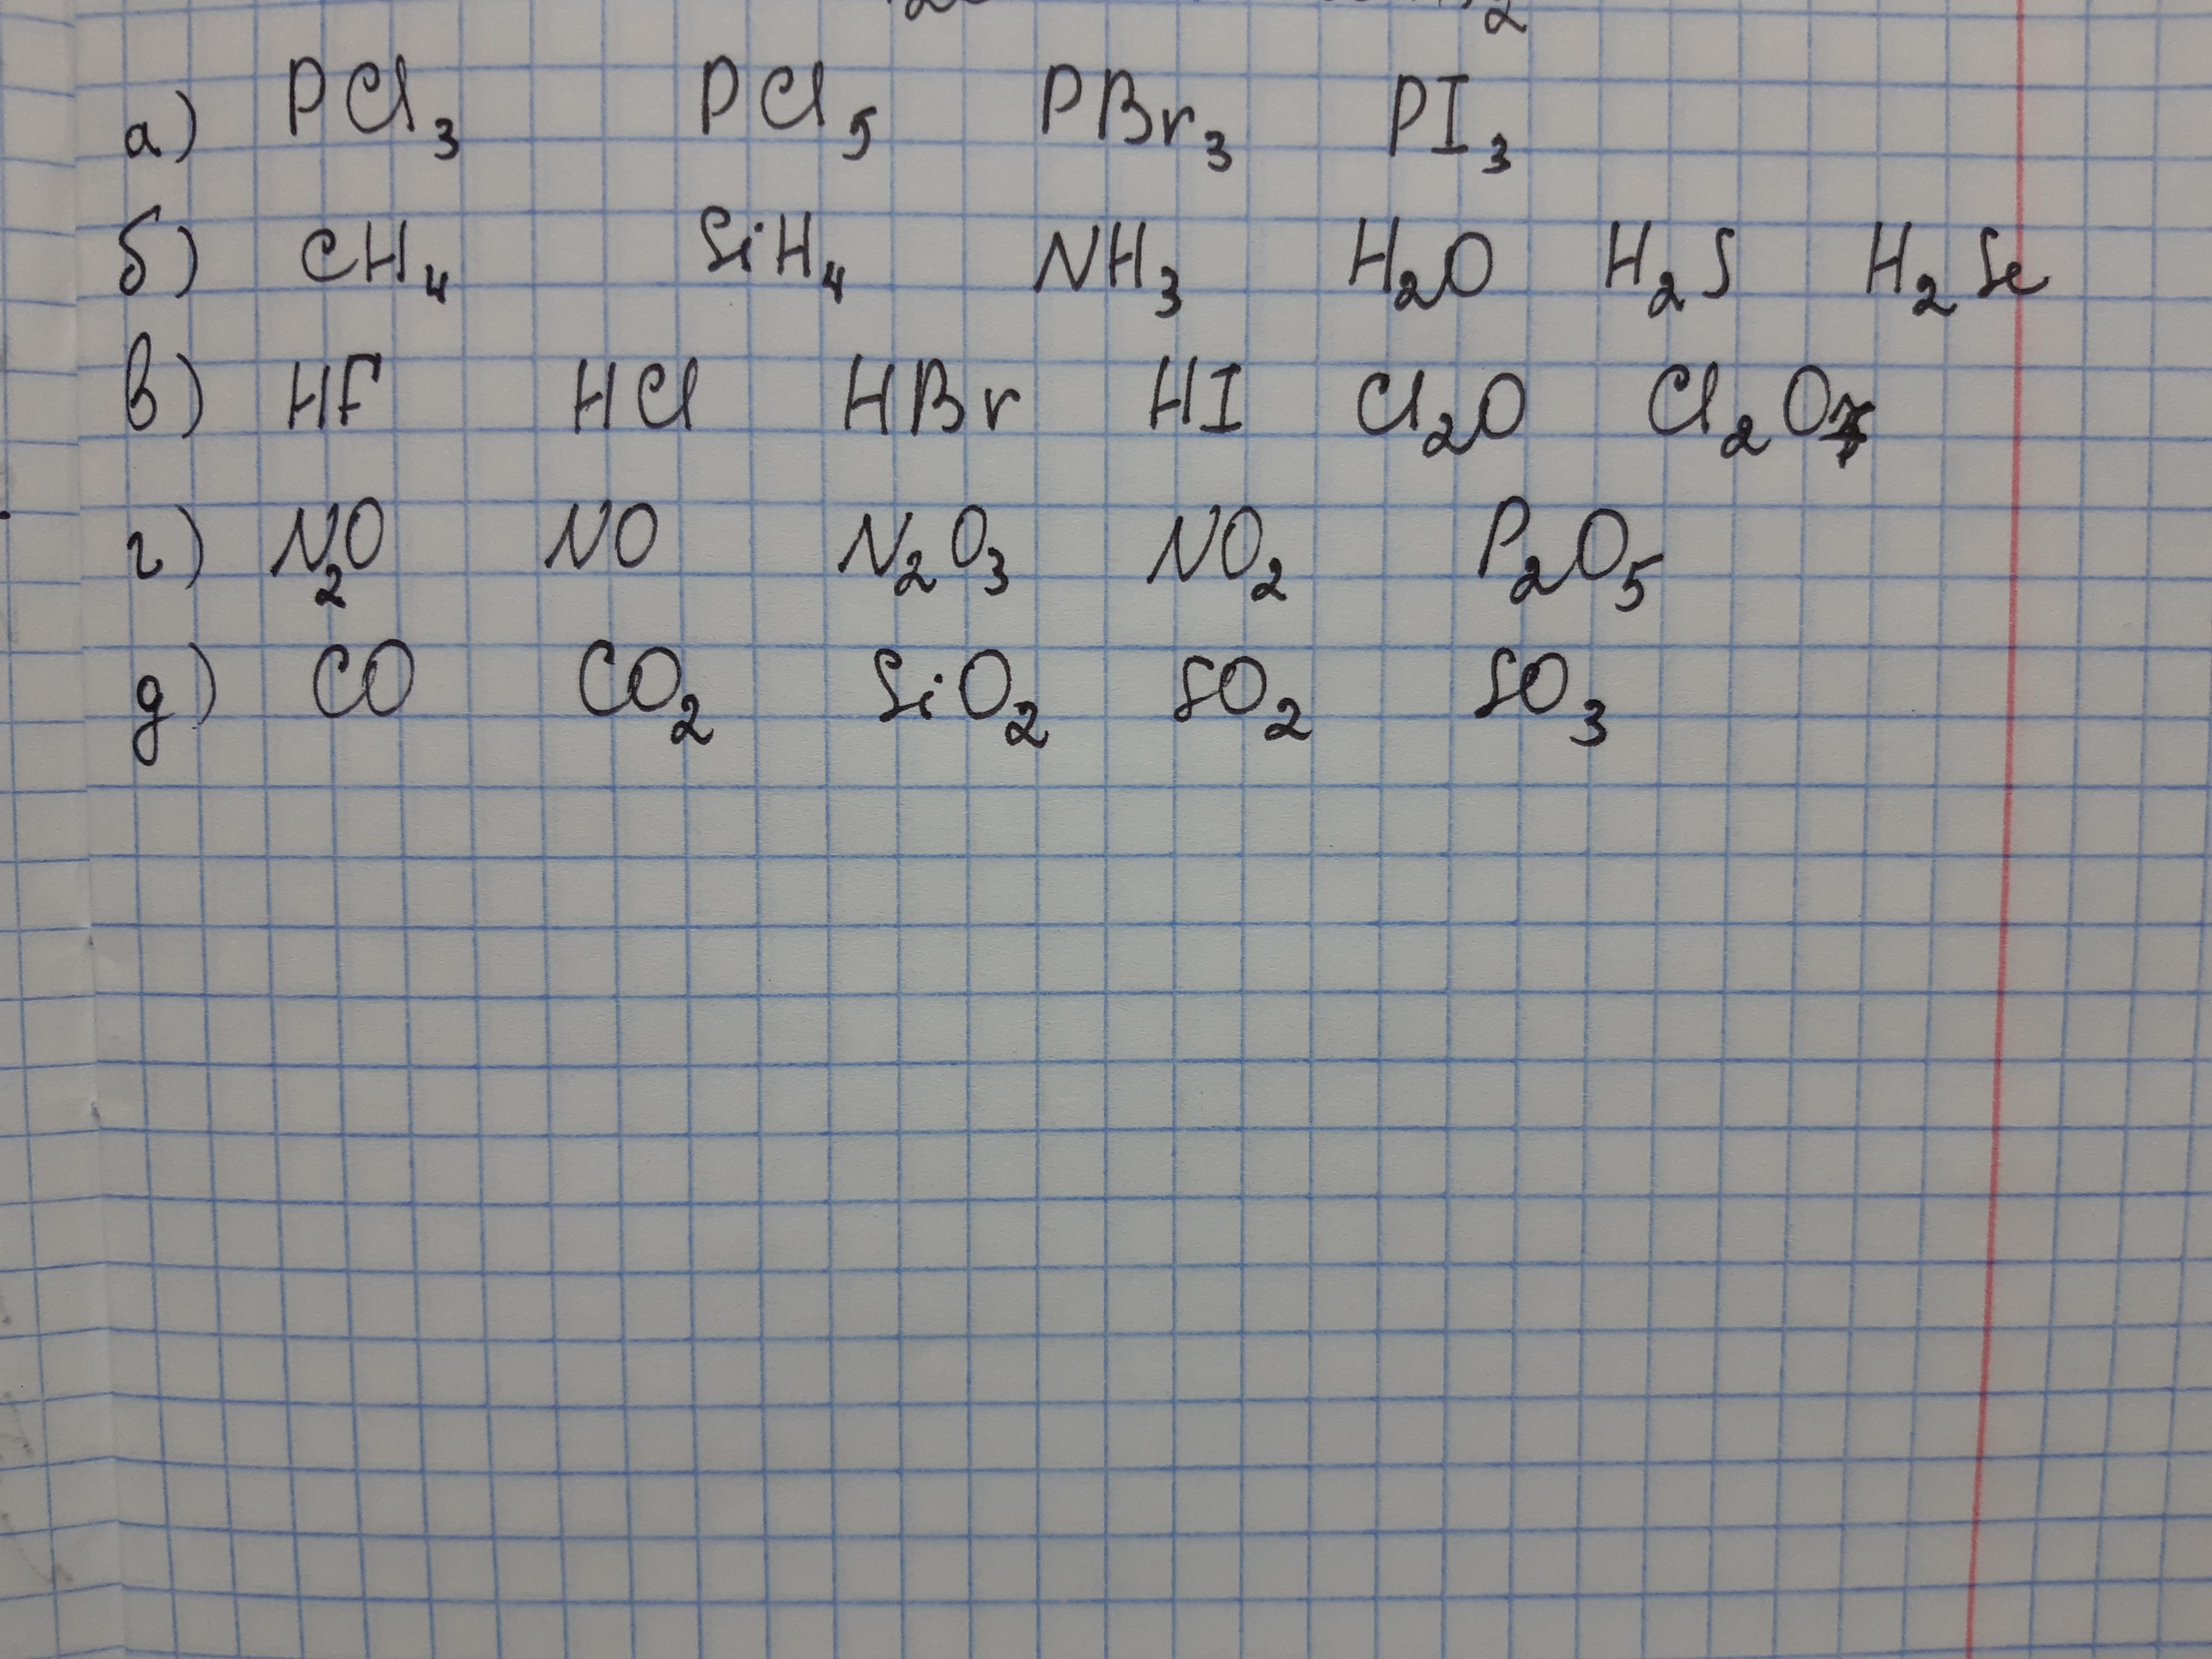 а) PCl₃ PCl₅ PBr₃ PI₃
б) CH₄ SiH₄ NH₃ H₂O H₂S H₂Se
в) HF HCl HBr HI Cl₂O Cl₂O₇
г) N₂O NO N₂O₃ NO₂ P₂O₅
д) CO CO₂ SiO₂ SO₂ SO₃